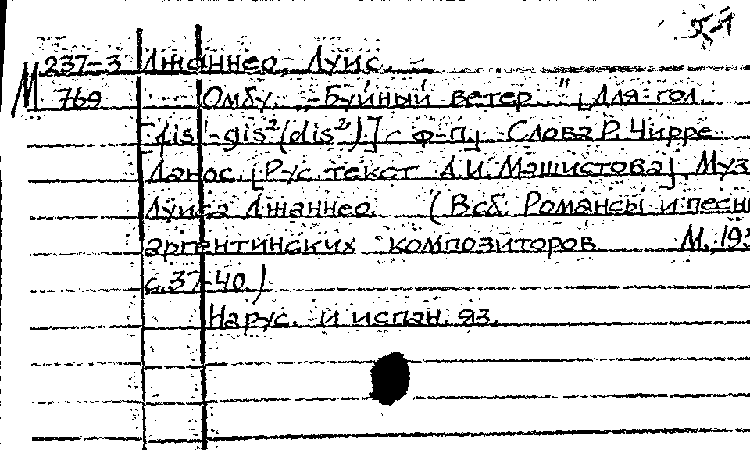 М 237-3 Джаннео, Луис. –
769 Омбу. „Буйный ветер..." [Для гол.
[dis¹-gis²(dis²)] с ф-п.] Слова Р. Чирре
Данос. [Рус. текст А.И. Машистова] Муз
Луиса Джаннео. (В сб. Романсы и песни
аргентинских композиторов М., 193
с. 37-40)
На рус. и испан. яз.